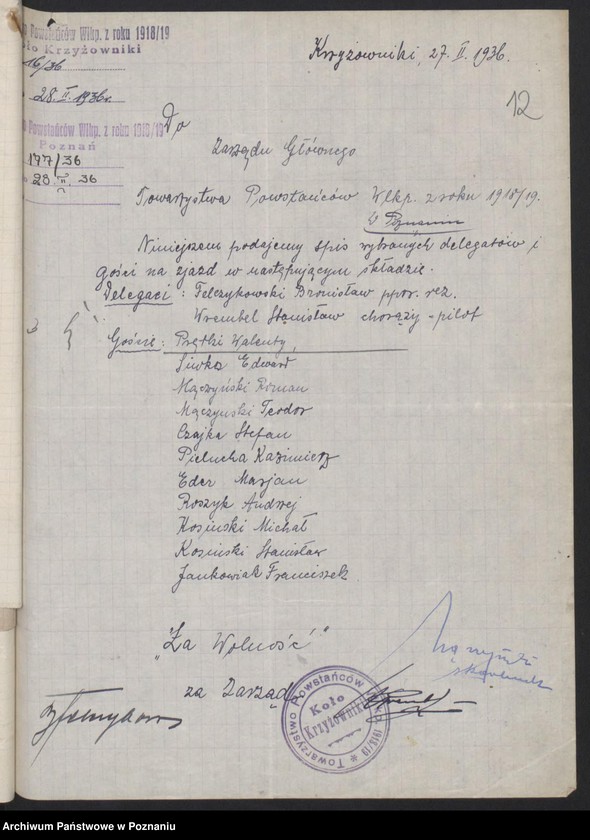 Powstańców Wlkp. z roku 1918/19
Koło Krzyżowniki
16/36
28.II.1936r.
Powstańców Wlkp. z roku 1918/19
Poznań
177/36
28 II 36
Krzyżowniki, 27. II. 1936.
12
Do
Zarządu Głównego
Towarzystwa Powstańców Wlkp. z roku 1918/19.
w Poznaniu
Niniejszem podajemy spis wybranych delegatów i
gości na zjazd w następującym składzie.
Delegaci : Felczykowski Bronisław ppor. rez.
Wrembel Stanisław chorąży-pilot
Goście : Prętki Walenty,
Siwka Edward
Mączyński Roman
Mączyński Teodor
Czajka Stefan
Pielucha Kazimierz
Eder Marjan
Roszyk Andrzej
Kosinski Michał
Kosinski Stanisław
Jankowiak Franciszek
"Za Wolność"
za Zarząd
Towarzystwo Powstańców Wlkp. 1918/19
Koło
Krzyżowniki
skarbnik
Archiwum Państwowe w Poznaniu